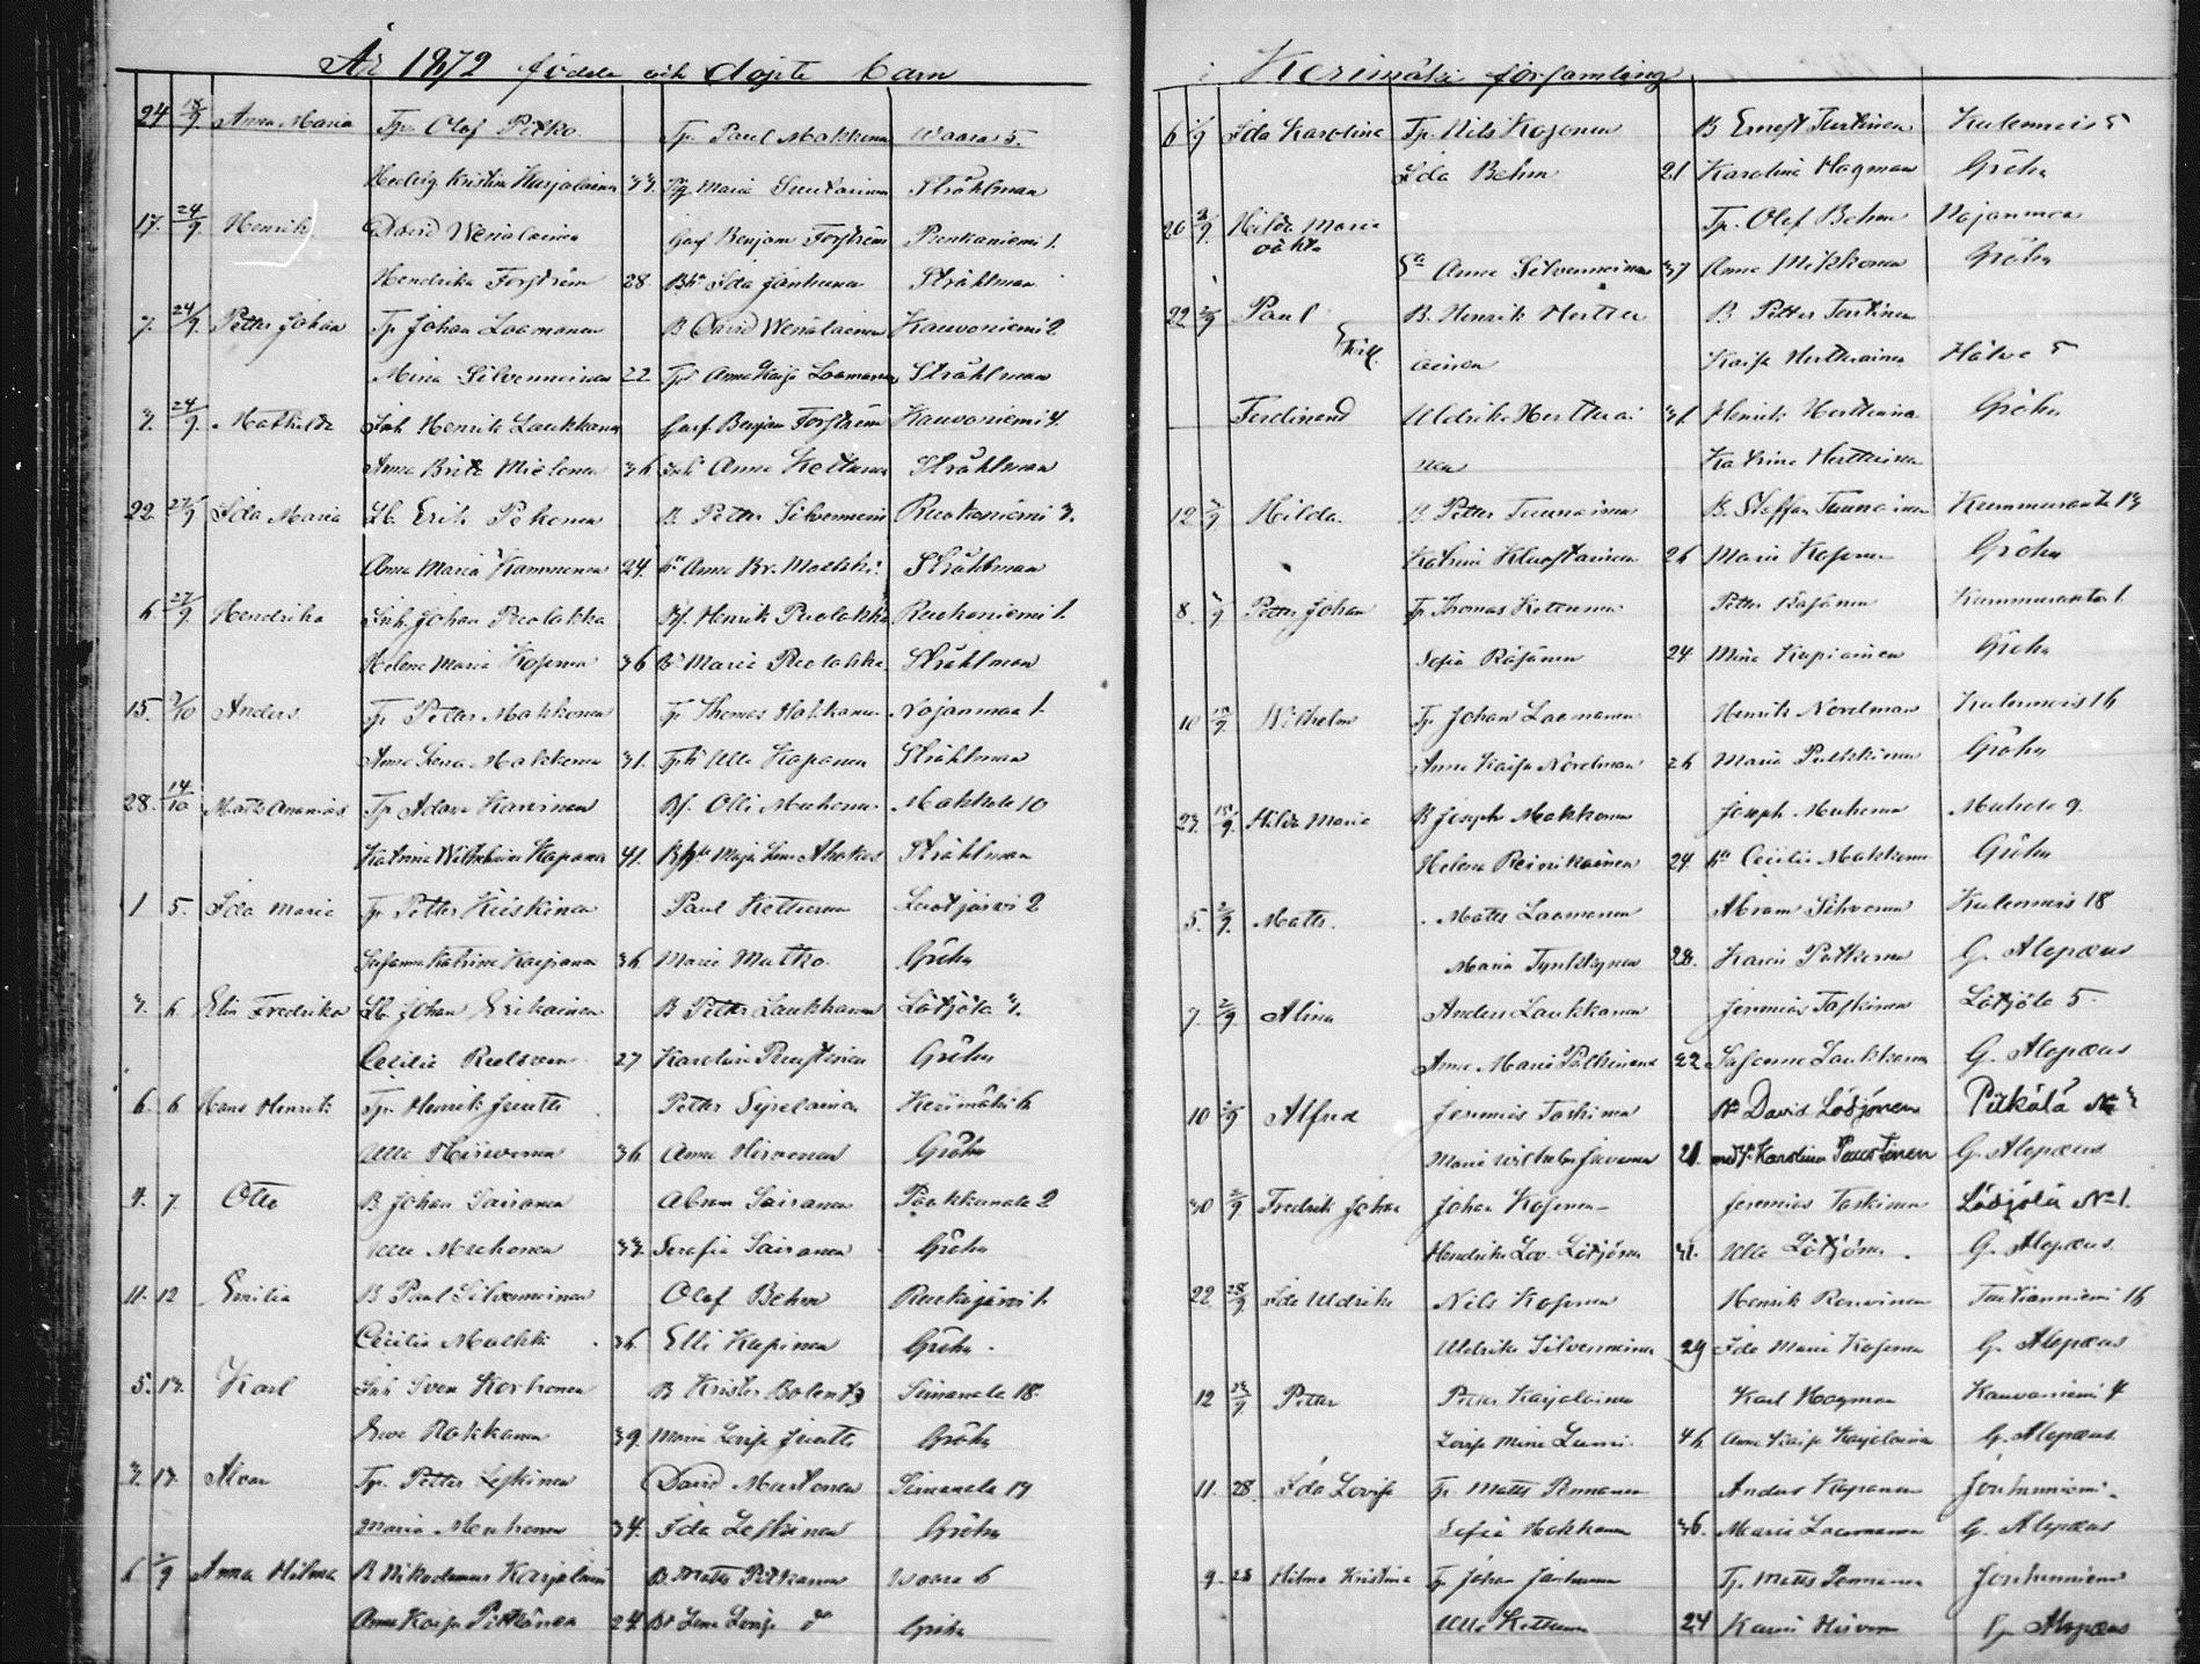 År 1872 födde och döpte barn
24 18/9 Anna Maria Tp. Olof Pitko Tp. Paul Makkonen Waara 5.
Hedvig Kristina Karjalainen 33 Maria Suutarinen Stråhlman
17. 24/9 Henrik David Wenäläinen Benjam Forsström Punkaniemi 1.
Hendrika Forsström 28 Ida Janhunen Stråhlman
7. 24/9 Petter Johan Tp Johan Laamanen B David Wenäläinen Kauvoniemi 2
Mina Silvennoinen 22 Anna Kaisa Laamanen Stråhlman
3. 24/9 Mathilda Inh Henrik Laukkanen Benjam Forsström Kauvoniemi 4.
Anna Brita Mielonen 36 Inh Anna Kettunen Stråhlman
22. 27/9 Ida Maria Lb. Erik Pekonen B Petter Silvennoin Ruokoniemi 3.
Anna Maria Kammonen 24. Anna Br. Malkki Stråhlman
6 27/9 Hendrika Inh. Johan Puolakka Henrik Puolakka Ruokoniemi 1.
Helena Maria Kosonen 36 Maria Puolakka Stråhlman
15. 7/10 Anders Tp Petter Makkonen Tp Thomas Hakkanen Nojanmaa 1.
Anna Lena Makkonen 31. Ulla Kapanen Stråhlman
28. 14/10 Matts Ananias Tp Adam Karvinen Olli Muhonen Makkola 10
Katrina Wilhelmina Kapanen 41. Maja Lena Stråhlman
1 5. Ida Maria Tp Petter Kiiskinen Paul Kettunen Luotjärvi 2
Susanna Katrina Karjanen 36 Maria Mutko Gröhn
3. 6 Elin Fredrika Lb. Johan Erikainen B Petter Laukkanen Lötjölä 3.
Cecilia 27 Karolina Puustinen Gröhn
6. 6 Hans Henrik Tp. Henrik Juutti Petter Syrelainen Kerimäki 6
Ulla Hirvonen 36 Anna Hirvonen Gröhn
4. 7. Otto B. Johan Sairanen Abram Sairanen Paakkunala 2
Ulla Muhonen 33 Serafia Sairanen Gröhn
11. 12 Emilia B Paul Silvennoinen Olof Behm Ruokojärvi 1.
Cecilia Malkki 36 Elli Kupinen Gröhn
5. 13. Karl Inh Sven Korhonen B Krister Bolentz Simanala 18.
Eva Rakkanen 39. Maria Lovisa Juutti Gröhn
3. 13. Alvar Tp. Petter Leskinen David Mustonen Simanala 19
Maria Muhonen 34. Ida Leskinen Gröhn
6 1/9 Anna Hilma B Nikodemus Karjalain B. Matts Pitkanen Waara 6
Anna Kaisa Pitkänen 24. Lena Lovisa do Gröhn
i Kerimäki församling
6 1/9 Ida Karolina Tp. Nils Kosonen B Ernest Turtinen Kulennois 5
Ida Behm 21 Karolina Hagman Gröhn
20 2/9 Hilda Maria Tp. Olof Behm Nojanmaa
oäkta Anna Silvennoinen 37 Anna Mikkonen Gröhn
22 Paul B. Henrik Herttu B Petter Turtinen
Tvill. ainen Kaisa Herttuainen Hälvä 5
Ferdinand Uldrika Herttuai 31 Henrik Herttuainen Gröhn
nen Katrina Herttuainen
12 Hilda. B Petter Tuunainen B. Staffan Tuunainen Kummunranta 13
Katrina 26 Maria Kosonen Gröhn
8 Petter Johan Tp Thomas Kettunen Petter Räsänen Kummunranta 1.
Sofia Räsänen 24 Mina Kupiainen Gröhn
10 Wilhelm Tp. Johan Laamanen Henrik Nordman Kulennois 16
Anna Kaisa Nordman 26 Maria Pulkkinen Gröhn
23. 15/9 Hilda Maria B Joseph Makkonen Joseph Muhonen Muhola 9.
Helena Reinikainen 24 Cecilia Makkonen Gröhn
5. 2/9 Matts. Matts Laamanen Abram Silvonen Kulennois 18
Maria Tynkkynen 28. Karin Putkonen G. Alopæus
7. 2/9 Alina Anders Laukkanen Jeremias Taskinen Lötjölä 5
Anna Maria Pulkkinen 22 Susanna Laukkanen G. Alopæus
10 Alfred Jeremias Taskinen David Lötjönen Pitkälä No 3
Maria Wilhelm. 21. Karolina Puustinen G. Alopæus
30 2/9 Fredrik Johan Johan Kosonen Jeremias Taskinen Lötjölä No 1.
Hendrika Lov. Lötjönen 31. Ulla Lötjönen G. Alopæus
22 28/9 Ida Uldrika Nils Kosonen Henrik Rouvinen 16
Uldrika Silvennoinen 29 Ida Maria Kosonen G. Alopæus
12 Petter Petter Karjalainen Karl Hagman Kauvoniemi 4
Lovisa Mina Lumi 46 Anna Kaisa Karjalainen G. Alopæus
11. 28. Ida Lovisa Tp. Matts Pennanen Anders Kapanen Jouhenniemi
Sofia Hakkanen 36. Maria Laamanen G. Alopæus
9. 28 Hilma Kristina Tp Johan Janhunen Tp. Matts Pennanen Jouhenniemi
Ulla Kettunen 24 Karin Hirvonen G. Alopæus